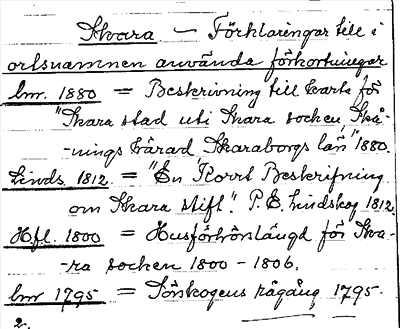 Skara — Förklaringar till i
ortsnamnen använda förkortningar
bm. 1880 = Beskrivning till karta för
"Skara stad uti Skara socken, Skå-
-nings härad Skaraborgs län" 1880.
Linds. 1812 = "En Korrt Beskrifning
om Skara stift". P. E. Lindskog 1812.
Hfl. 1800 = Husförhörslängd för Ska-
-ra socken 1800 - 1806.
bm 1795 = rågång 1795.
2.